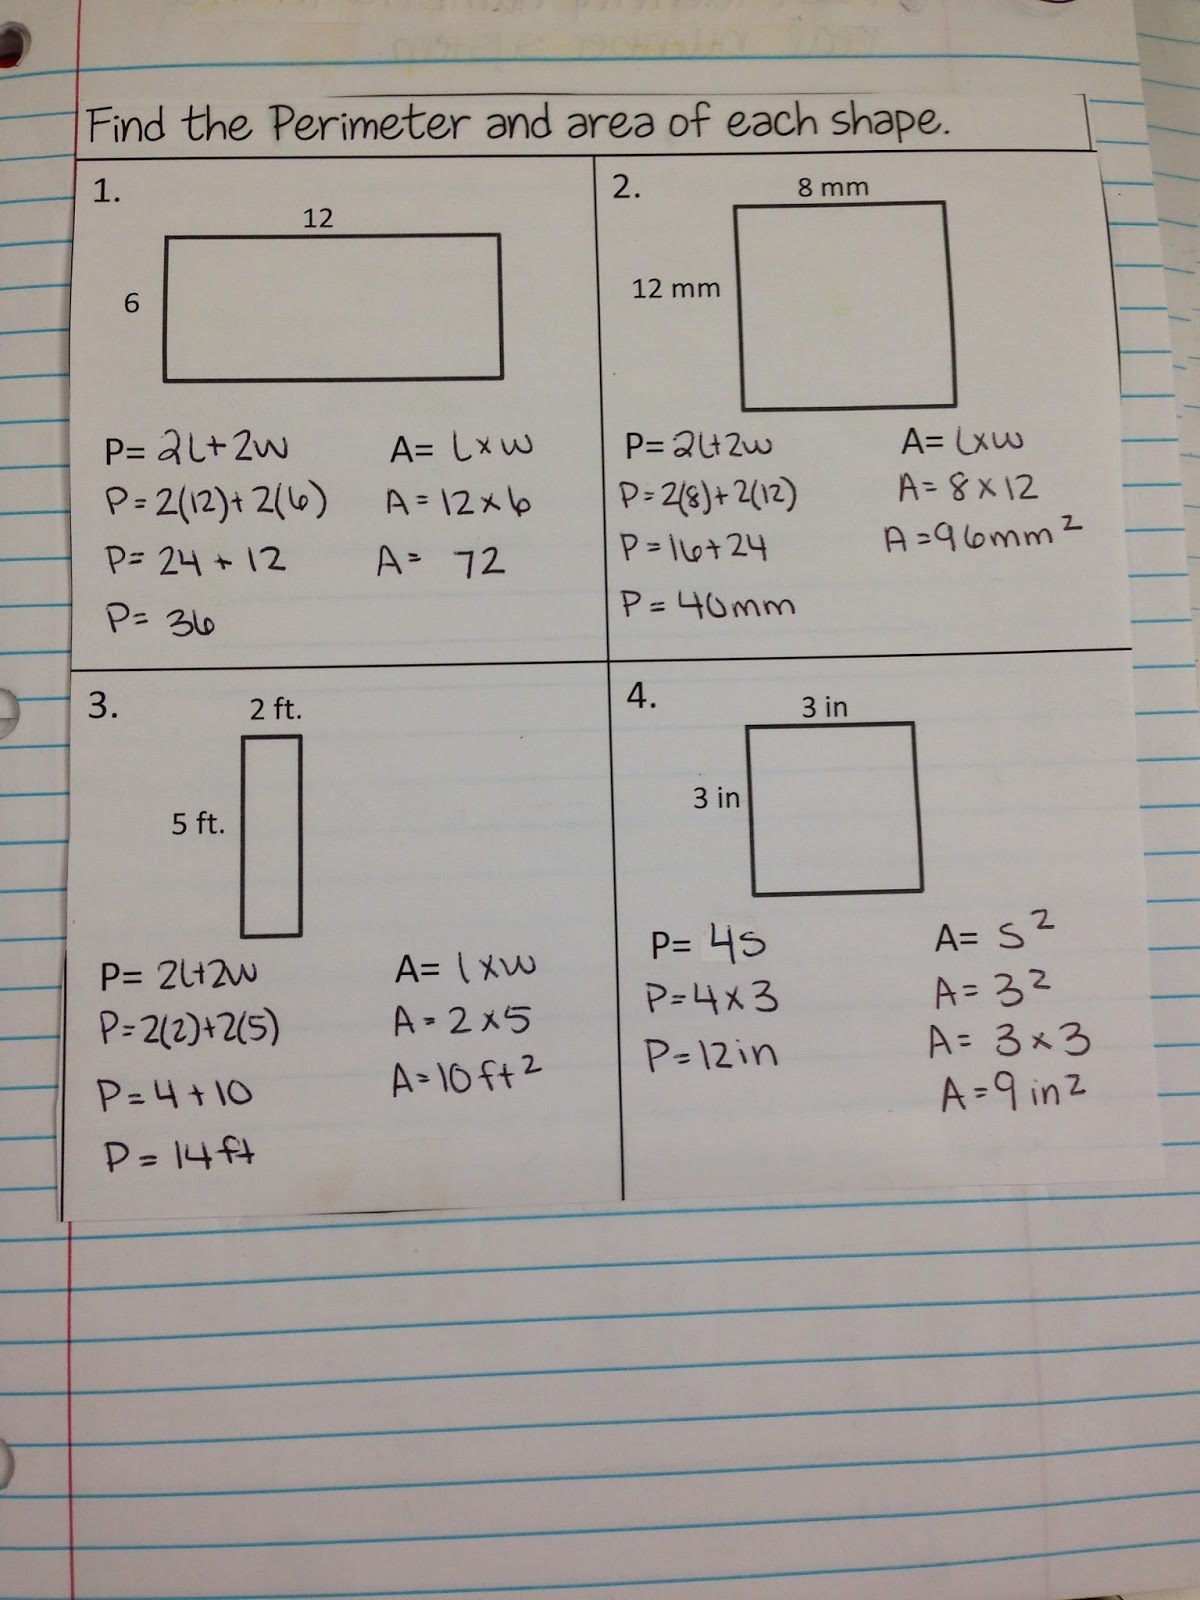 Find the Perimeter and area of each shape.
1.
12
6
P= 2l+2w
P=2(12)+2(6)
P= 24+12
P= 36
A= l×w
A=12×6
A= 72
2.
8 mm
12 mm
P=2l+2w
P=2(8)+2(12)
P=16+24
P=40mm
A= l×w
A=8×12
A=96mm²
3.
2 ft.
5 ft.
P= 2l+2w
P=2(2)+2(5)
P=4+10
P=14ft
A= l×w
A=2×5
A=10ft²
4.
3 in
3 in
P= 4s
P=4×3
P=12in
A= s²
A=3²
A= 3×3
A=9in²